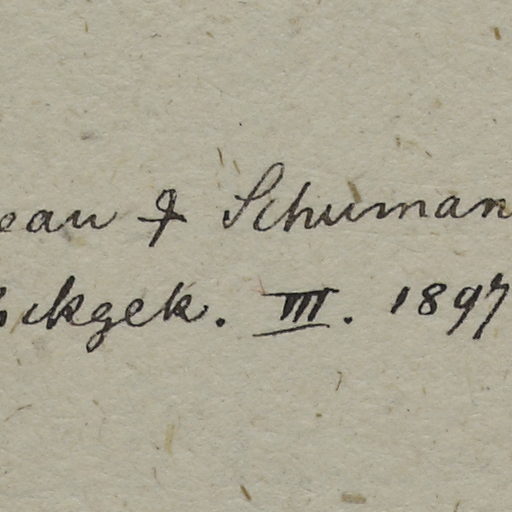 eau & Schuman
ckgek. III. 1897